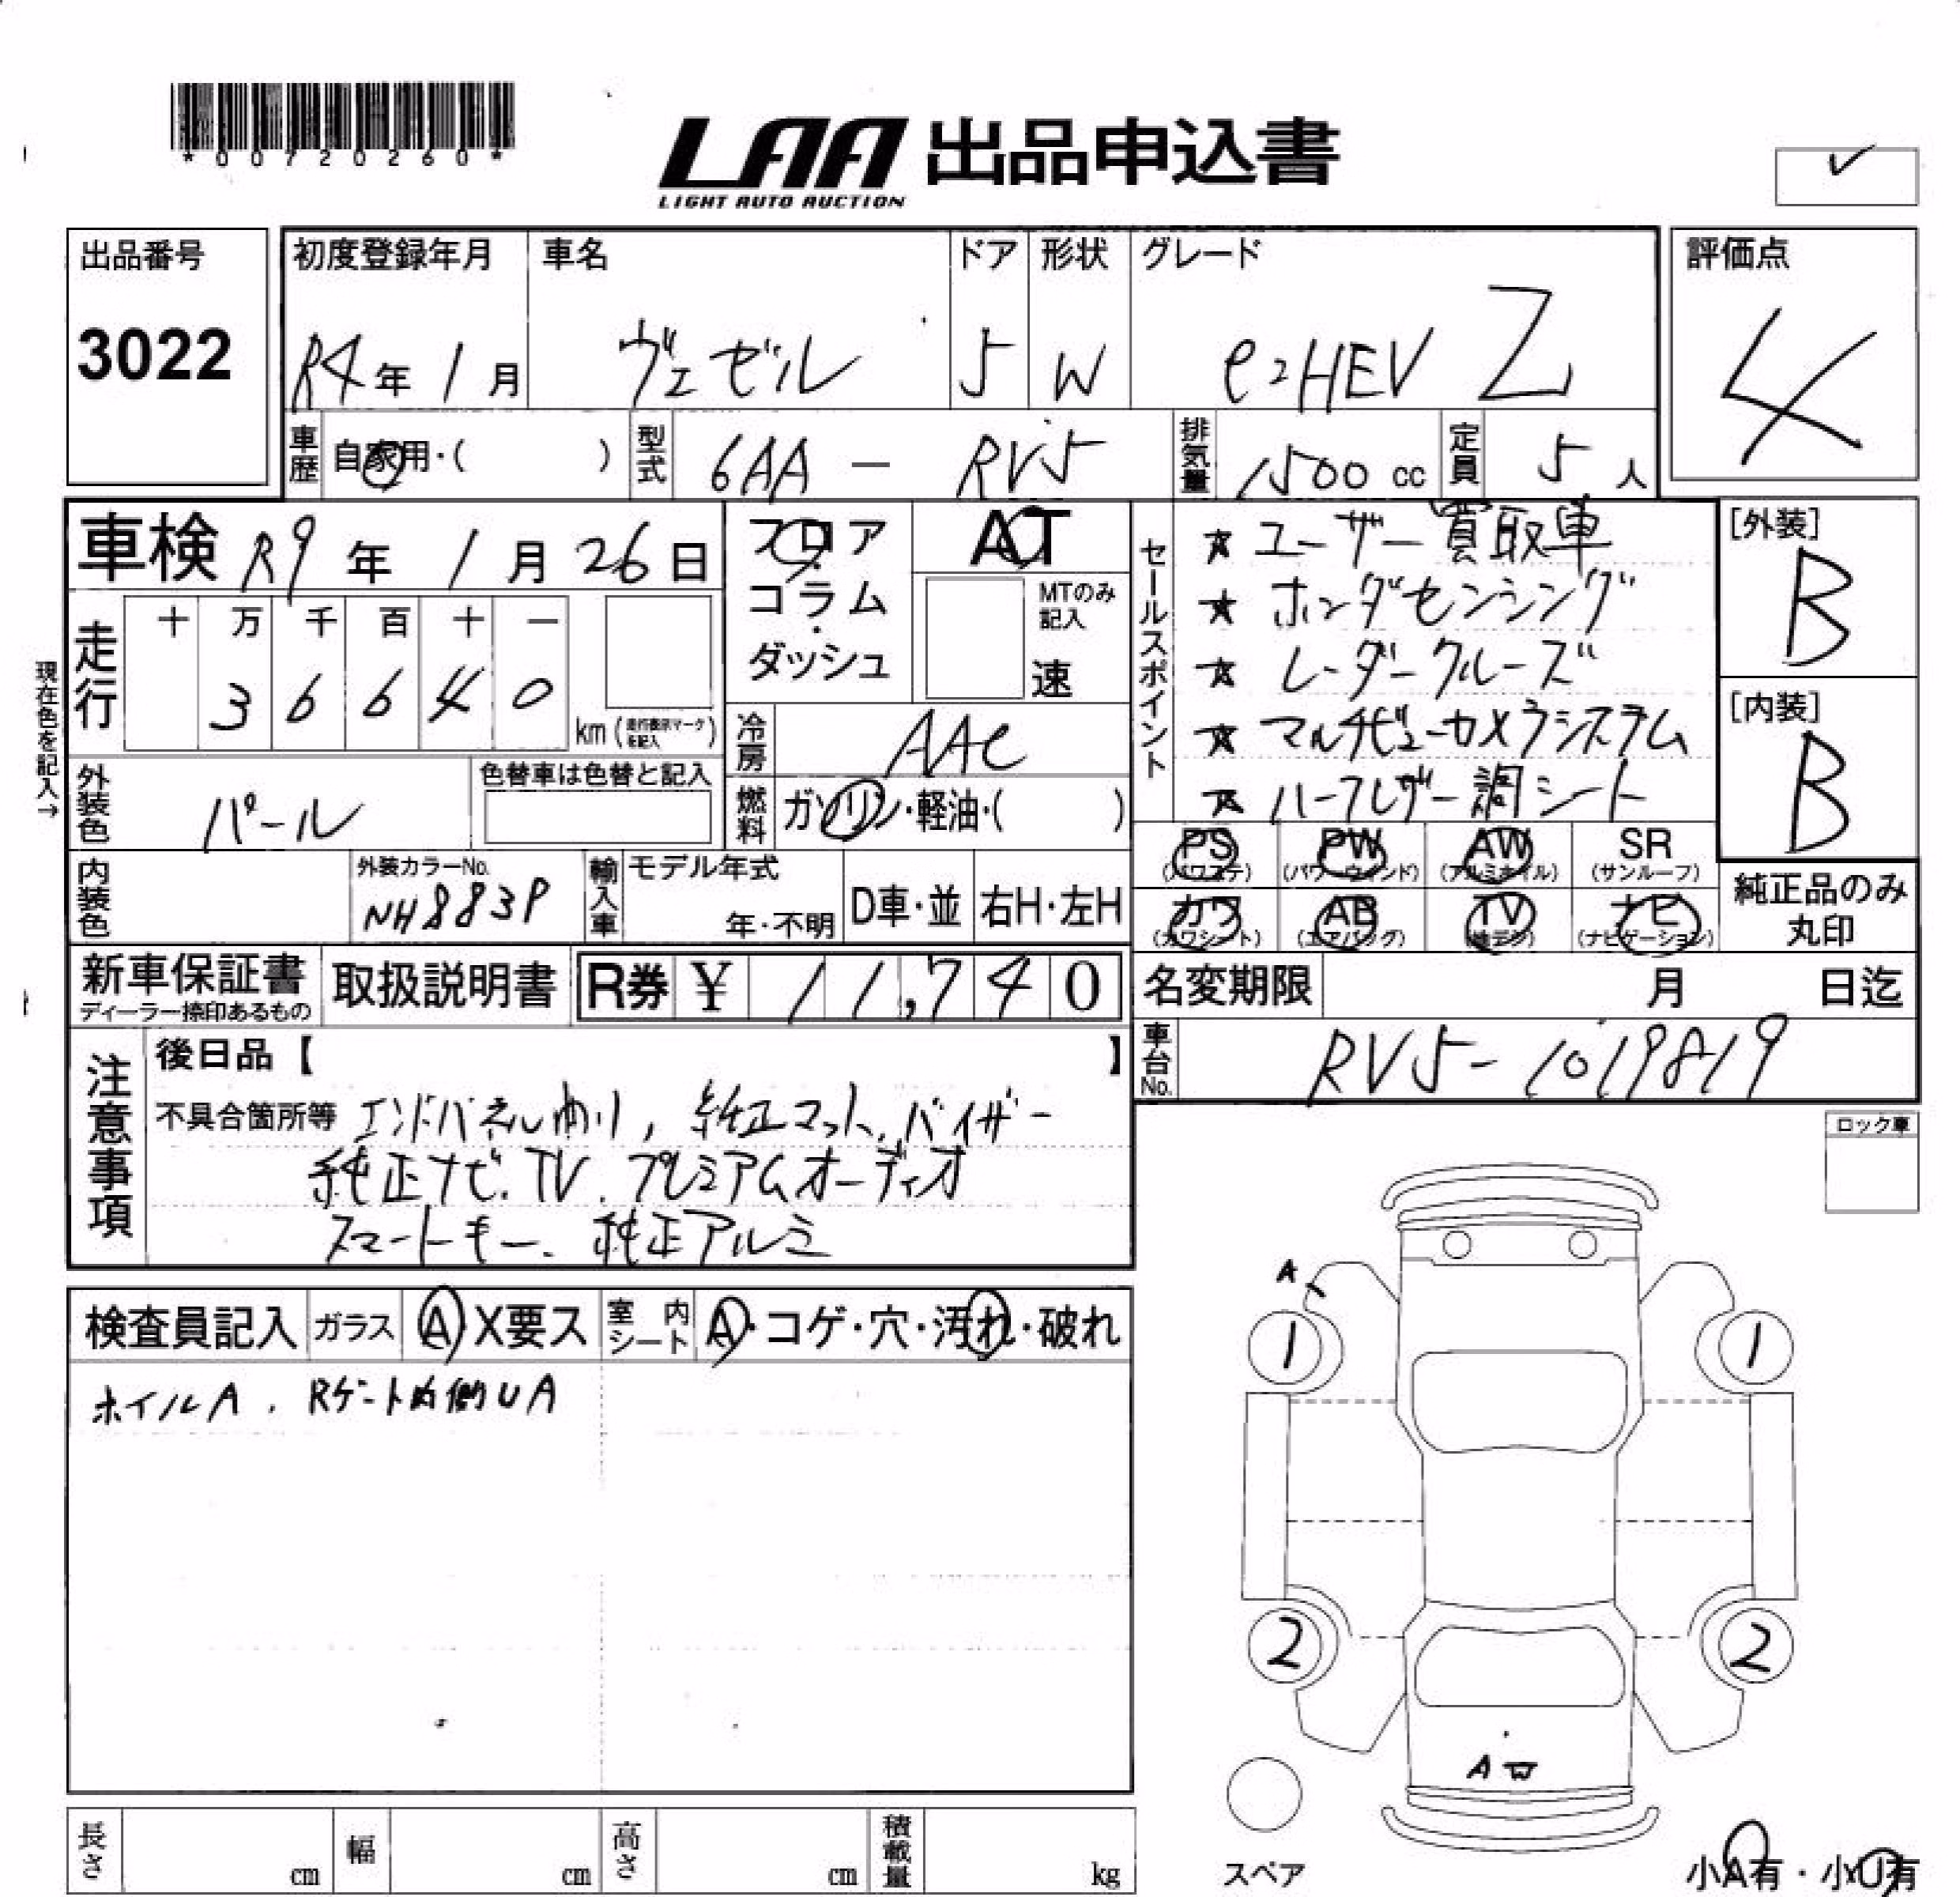 *00720260*
LAA 出品申込書
LIGHT AUTO AUCTION
出品番号
3022
初度登録年月
R4年 1月
車名
ヴェゼル
ドア
5
形状
W
グレード
e:HEV Z
評価点
4
車歴 自家用・( )
型式 6AA - RV5
排気量 1500 cc
定員 5人
車検 R9年 1月 26日
フロア・コラム・ダッシュ
AT
MTのみ記入
速
セールスポイント
★ ユーザー買取車
★ ホンダセンシング
★ レーダークルーズ
★ マルチビューカメラシステム
★ ハーフレザー調シート
[外装]
B
[内装]
B
現在色を記入→
走行
十 万 千 百 十 一
3 6 6 4 0
km (走行表示マークを記入)
冷房 AAC
燃料 ガソリン・軽油・( )
外装色 パール
色替車は色替と記入
内装色
外装カラーNo.
NH883P
輸入車
モデル年式
年・不明
D車・並
右H・左H
PS (パワステ)
PW (パワーウィンド)
AW (アルミホイル)
SR (サンルーフ)
カワ (カワシート)
AB (エアバッグ)
TV (地デジ)
ナビ (ナビゲーション)
純正品のみ丸印
新車保証書
ディーラー捺印あるもの
取扱説明書
R券 ¥ 11,740
名変期限 月 日迄
車台No. RV5-1019819
注意事項
後日品【 】
不具合箇所等 エンドパネル曲り, 純正マット、バイザー
純正ナビ、TV、プレミアムオーディオ
スマートキー、純正アルミ
ロック車
検査員記入
ガラス A X要ス
室内シート A・コゲ・穴・汚れ・破れ
ホイルA、Rゲート内側UA
A
1
1
2
2
A
スペア
小A有・小U有
長さ cm
幅 cm
高さ cm
積載量 kg